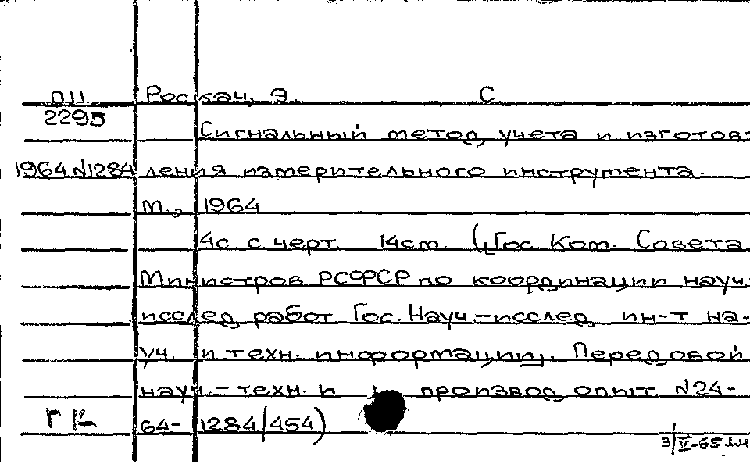 П11 Роскач, Э. С
2295
Сигнальный метод учета и изготов-
1964 №1284 ления измерительного инструмента.
М., 1964
4с с черт. 14см. (Гос. Ком. Совета
Министров РСФСР по координации науч.
исслед. работ. Гос. Науч.-исслед. ин-т на-
уч. и техн. информации). Передовой
науч.-техн. и производ. опыт. №24-
64-1284/454)
3/V-65